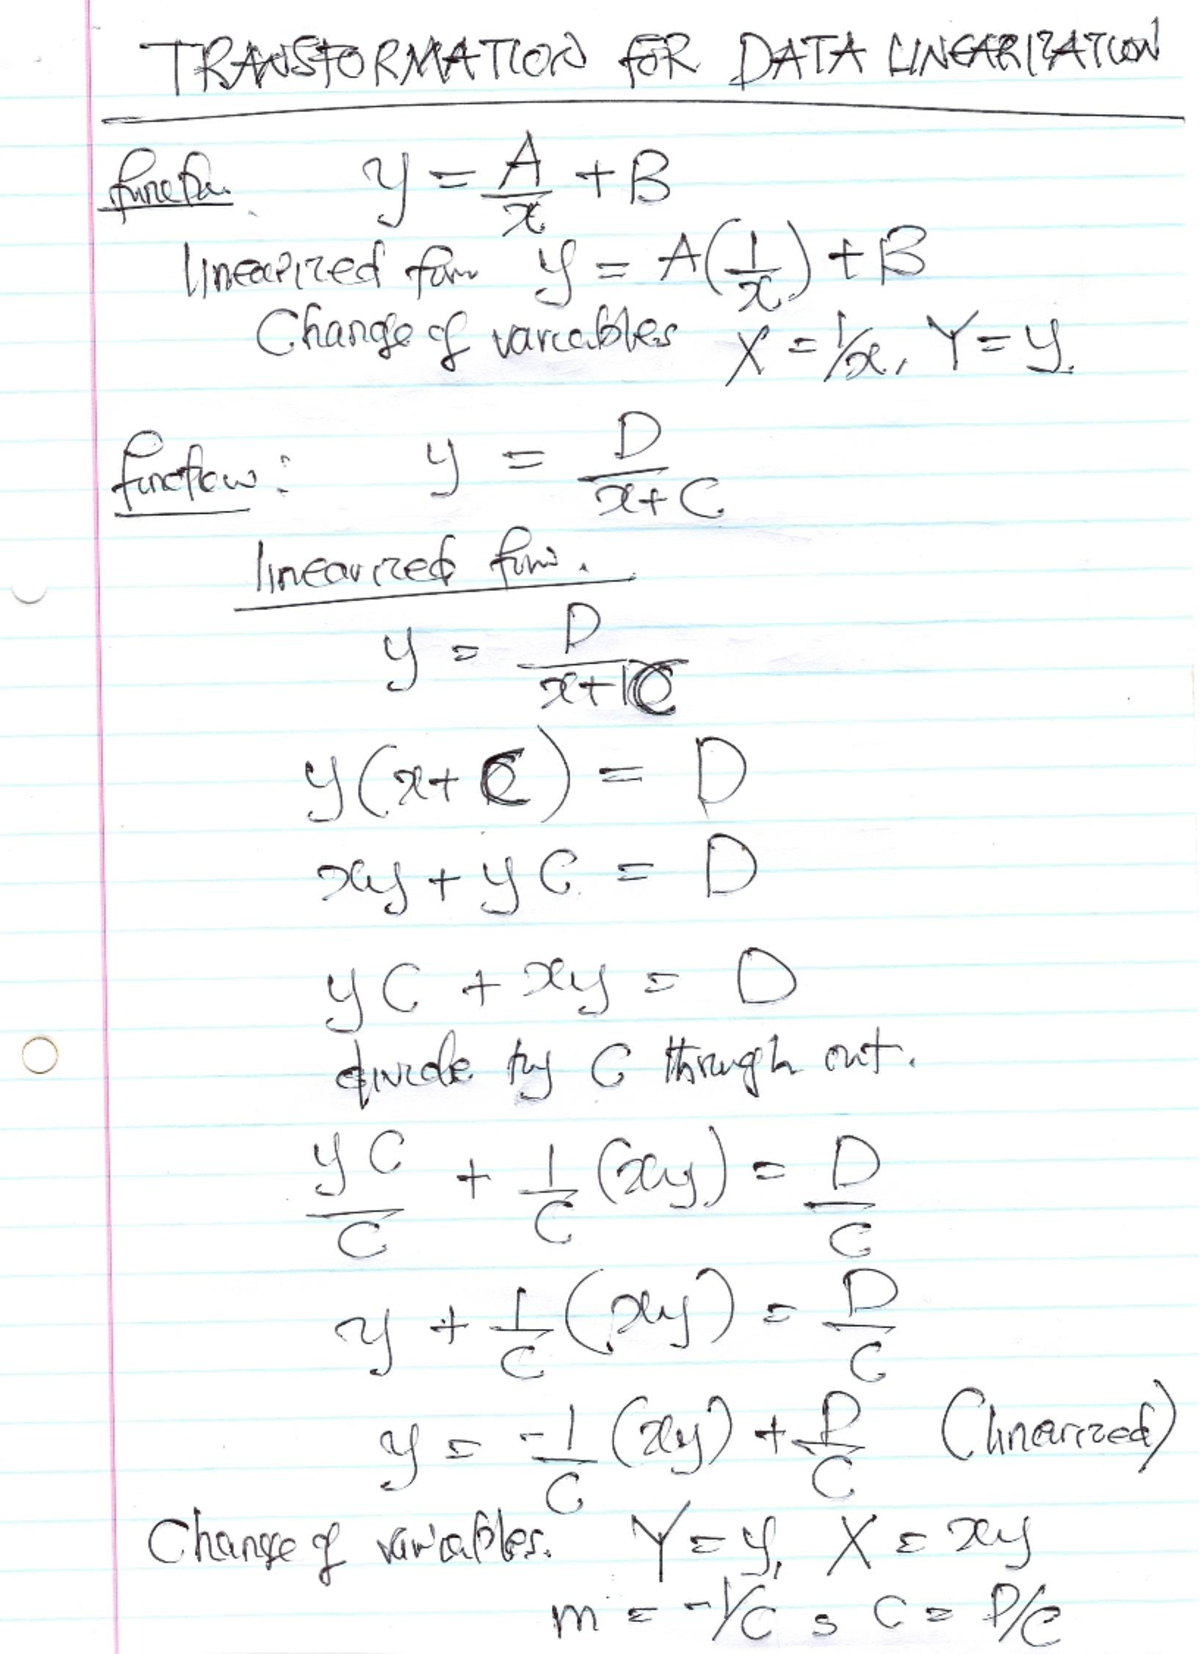 TRANSFORMATION FOR DATA LINEARIZATION
function y = A/x + B
linearized form y = A(1/x) + B
Change of variables X = 1/x, Y = y.
function: y = D/(x + C)
linearized form.
y = D/(x + C)
y(x + C) = D
xy + yC = D
yC + xy = D
divide by C through out.
yC/C + 1/C (xy) = D/C
y + 1/C (xy) = D/C
y = -1/C (xy) + D/C (linearized)
Change of variables. Y = y, X = xy
m = -1/C, C = D/C